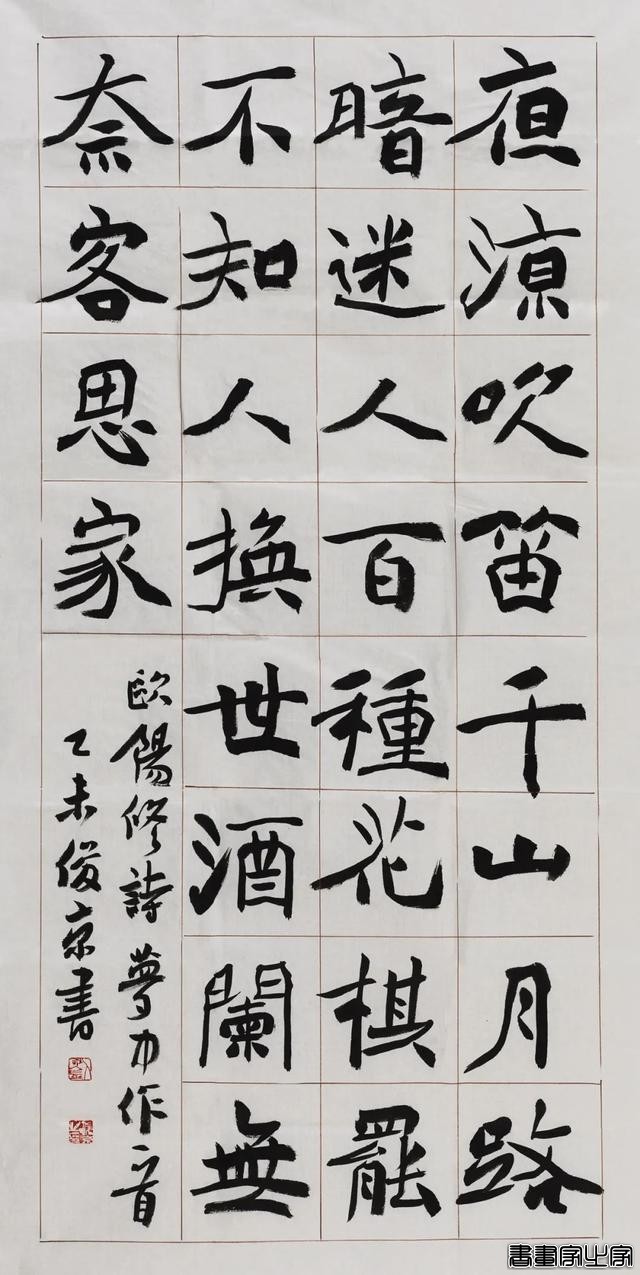 夜涼吹笛千山月路
暗迷人百種花棋罷
不知人換世酒闌無
奈客思家
歐陽修詩夢中作一首
乙未俊京書